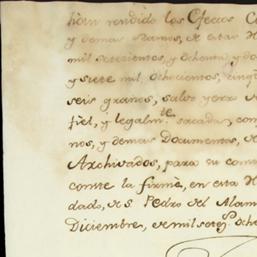 han rendido los Efectos C
y demas Ramos, de estas R
mil setecientos, y ochenta, y do
y siete mil, ochocientos, cinq
seis granos, salvo yerro d
fiel, y legalmte. sacada, con
nos, y demas Documentos, d
Archivados, para su con
conste la firmè, en esta
dado, de S. Pedro del Alam
Diciembre, de mil setecs. Oche